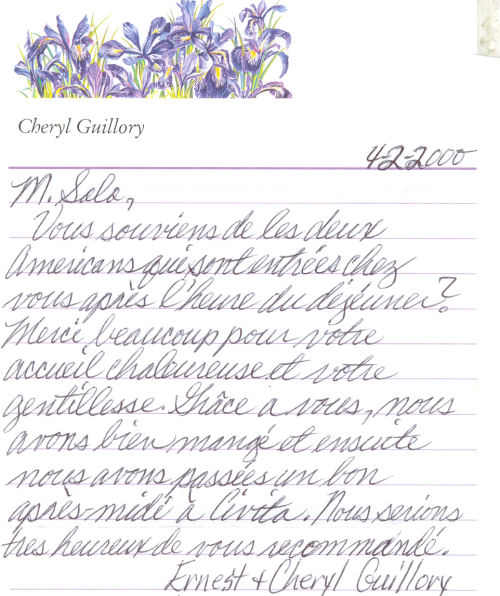 Cheryl Guillory
4-2-2000
M. Salo,
Vous souviens de les deux
Americans qui sont entrées chez
vous après l'heure du déjeuner?
Merci beaucoup pour votre
accueil chaleureuse et votre
gentillesse. Grâce a vous, nous
avons bien mangé et ensuite
nous avons passées un bon
après-midi à Civita. Nous serions
tres heureux de vous recommandé.
Ernest & Cheryl Guillory